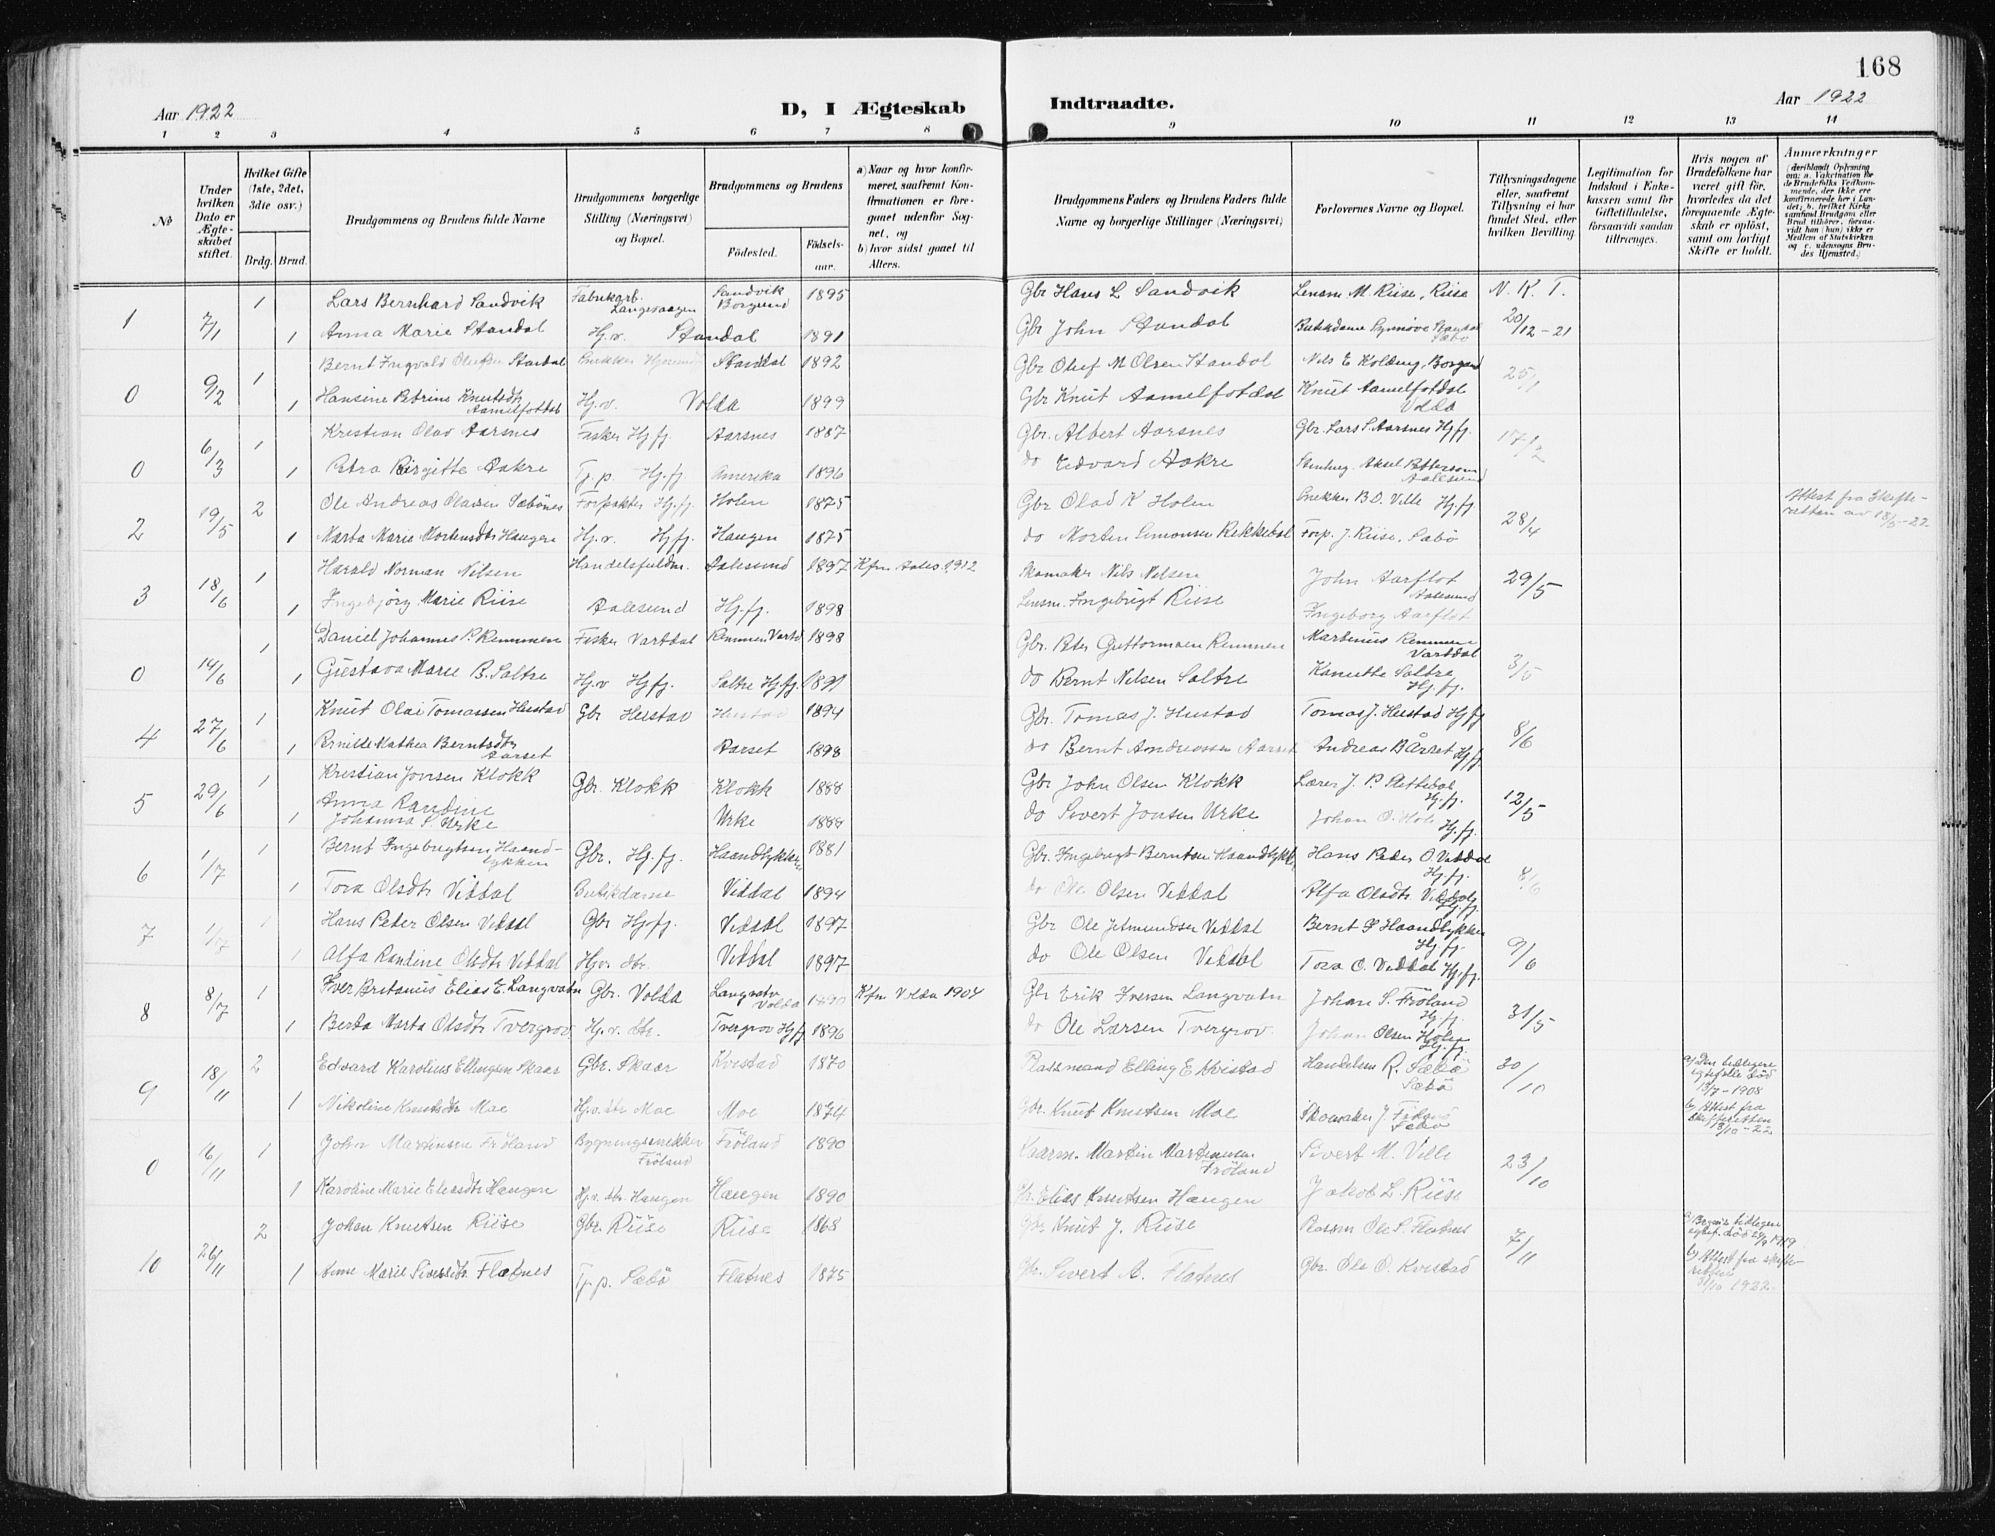 168
Aar 1922
D, I Ægteskab
Indtraadte.
Aar 1922
1 2 3 4 5 6 7 8
9 10 11 12 13 14
No
Under hvilken Dato er Ægteskabet stiftet.
Hvilket Gifte (1ste, 2det, 3dte osv.)
Brdg. Brud.
Brudgommens og Brudens fulde Navne
Brudgommens borgerlige Stilling (Næringsvei) og Bopæl.
Brudgommens og Brudens
Fødested.
Fødselsaar.
a) Naar og hvor konfirmeret, saafremt Konfirmationen er foregaaet udenfor Sognet, og
b) hvor sidst gaaet til Alters.
Brudgommens Faders og Brudens Faders fulde Navne og borgerlige Stillinger (Næringsvei)
Forlovernes Navne og Bopæl.
Tillysningsdagene eller, saafremt Tillysning ei har fundet Sted, Dato er hvilken Bevilling.
Legitimation for Indskud i Enkekassen samt for Giftetilladelse, forsaavidt saadan tiltrænges.
Hvis nogen af Brudefolkene har været gift før, hvorledes da det foregaaende Ægteskab er opløst, samt om lovligt Skifte er holdt.
Anmærkninger
1 7/1 1 Lars Bernhard Sandvik Fabrikarb. Langevaagen Sandvik Borgund 1895 Gbr Hans L Sandvik Lensm M. Riise, Riise N. K. T.
1 Anna Marie Standal Hj.v. Standal 1891 Gbr John Standal Butikdame Synnøve Standal Sæbø 20/12-21
0 9/2 1 Bernt Ingvald Olufsen Standal Snekker Standal 1892 Gbr Oluf M Olsen Standal Nils E Kolding, Borgund 25/1
1 Hansine Petrine Knutsdtr Aamelfotdal Hj.v. Volda 1899 Gbr Knut Aamelfotdal Knut Aamelfotdal Volda
0 6/3 1 Kristian Olav Aarsnes Fisker Hjfj. Aarsnes 1887 Gbr. Albert Aarsnes Gbr. Lars S. Aarsnes Hjfj. 17/2
1 Petra Birgitte Aakre Tj.p. Hj.fj. Amerika 1896 do Edvard Aakre Aksel Pettersen Aalesund
2 19/5 2 Ole Andreas Olavsen Sæbönes Forpakter Hj.fj. Holen 1875 Gbr Olad K Holen Snekker B.O. Ville Hj.fj 28/4 Attest fra Skifteretten av 18/5-22
1 Marta Marie Mortensdtr Haugen Hj.v. Hjfj. Haugen 1875 do Morten Simonsen Rekkedal Forp. J. Riise, Sæbø
3 18/6 1 Harald Norman Nilsen Handelsfuldm. Aalesund 1897 Kfm Aales. 1912 Skomaker Nils Nilsen John Aarflot Aalesund 29/5
1 Ingebjørg Marie Riise Aalesund Hj.fj. 1898 Lensm. Ingebrigt Riise Ingeborg Aarflot
0 14/6 1 Daniel Johannes P. Remmen Fisker Vartdal Remmen Vartd 1898 Gbr. Peter Guttormsen Remmen Martinus Remmen Vartdal 3/5
1 Gustava Marie B. Saltre Hj.v Hjfj. Saltre Hj.fj. 1891 do Bernt Nilsen Saltre Kanutte Saltre Hj.fj.
4 27/6 1 Knut Olai Tomassen Hustad Gbr Hustad Hustad 1894 Gbr. Tomas J. Hustad Tomas J. Hustad Hjfj 8/6
1 Pernille Mathea Berntsdtr Aarset Aarset 1898 do Bernt Andreassen Aarset Andreas B Årset Hjfj
5 29/6 1 Kristian Jonsen Klokk Gbr. Klokk Klokk 1888 Gbr John Olsen Klokk Lærer J. P. Slettedal Hj.fj. 12/5
1 Anna Randine Johanna S. Urke Urke 1888 do Sivert Jonsen Urke Johan O. Hj.fj.
6 1/7 1 Bernt Ingebrigtsen Haandlykken Gbr. Hj.fj. Haandlykken 1881 Gbr. Ingebrigt Berntsen Haandlykk Hans Peder O. Viddal Hj.fj. 8/6
1 Tora Olsdtr Viddal Butikdame Viddal 1894 do Ole Olsen Viddal Alfa Olsdtr Viddal Hj.fj.
7 1/7 1 Hans Peter Olsen Viddal Gbr Hj.fj. Viddal 1897 Gbr Ole Jetmundsen Viddal Bernt P Haandlykken Hj.fj. 9/6
1 Alfa Randine Olsdtr Viddal Hj.v. dtr. Viddal 1897 do Ole Olsen Viddal Tora O. Viddal Hj.fj.
8 8/7 1 Iver Britanius Elias E. Langvatn Gbr. Volda Langvatn Volda 1890 Kfm Volda 1904 Gbr Erik Iversen Langvatn Johan S. Fröland Hj.fj. 31/5
1 Berta Marta Olsdtr Tvergrov Hj.v. dtr. Tvergrov Hj.fj 1896 do Ole Larsen Tvergrov Johan Olsen Holen Hj.fj.
9 18/11 2 Edvard Karolius Ellingsen Skaar Gbr. Skaar Kvistad 1870 Elling E Kvistad Handelsm R. Sæbø Sæbö 30/10 a) Den tidligere egtefelle död 13/7-1908 b) Attest fra skifteretten 13/10-22
1 Nikoline Knutsdtr Moe Hj.v. dtr Moe Moe 1874 Gbr. Knut Knutsen Moe Skomaker J Sæbö
0 16/11 1 John Martinsen Fröland Bygningssnekker Fröland Fröland 1890 Kaarm. Martin Martinussen Fröland Sivert M. Ville 23/10
1 Karoline Marie Eliasdtr Haugen Hj.v. dtr. Haugen Haugen 1890 Gbr. Elias Knutsen Haugen Jakob L. Riise
10 26/11 2 Johan Knutsen Riise Gbr. Riise Riise 1868 Gbr Knut J. Riise Rasm Ole S. Flatnes 7/11 tidligere egtef. död 28/9 1919 b) Attest fra skifteretten 31/10 1922
1 Anne Marie Siversdtr Flatnes Tj.p. Sæbö Flatnes 1875 Gbr. Sivert A. Flatnes Gbr. Ole O. Kvistad